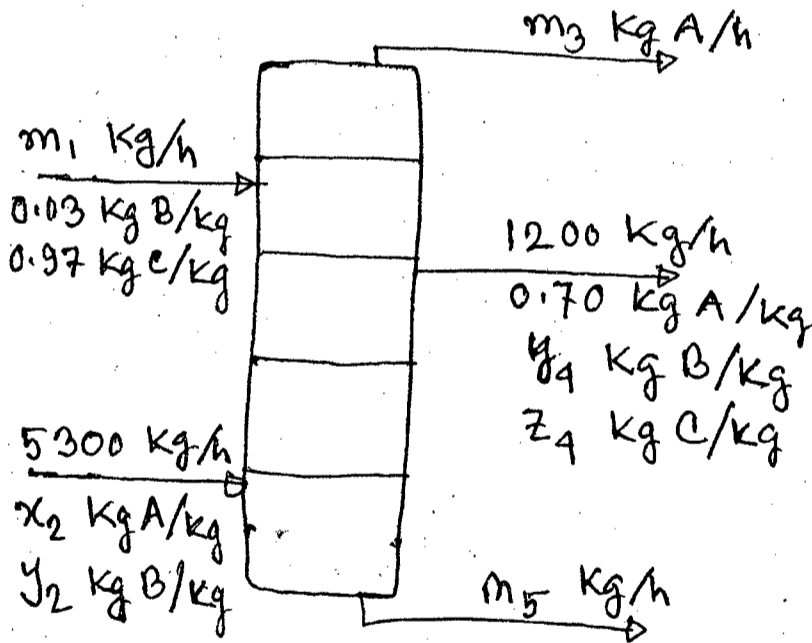 m₃ Kg A/h
m₁ Kg/h
0.03 Kg B/kg
0.97 Kg C/kg
1200 Kg/h
0.70 Kg A/kg
y₄ Kg B/kg
z₄ Kg C/kg
5300 Kg/h
x₂ Kg A/kg
y₂ Kg B/kg
m₅ Kg/h